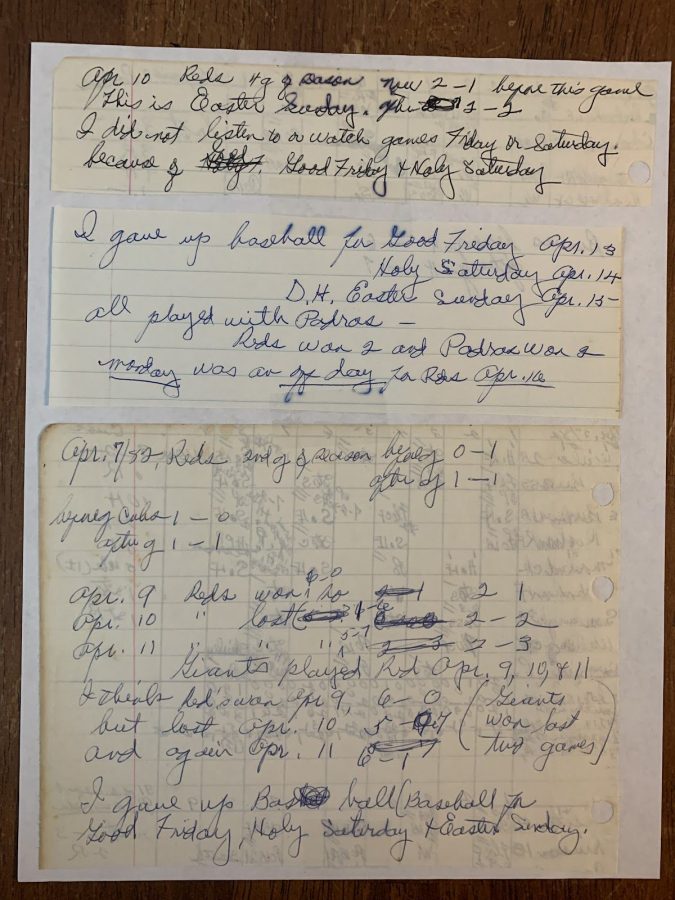 Apr. 10 Reds 4 g of season now 2-1 before this game
This is Easter Sunday. 2-2
I did not listen to or watch games Friday or Saturday.
because of Good Friday & Holy Saturday
I gave up baseball for Good Friday Apr. 13
Holy Saturday Apr. 14
D.H. Easter Sunday Apr. 15-
all played with Padras -
Reds won 2 and Padras won 2
Monday was an off day for Reds Apr. 16
Apr. 7/82, Reds 2nd g of season before g 0-1
after g 1-1
before g Cubs 1-0
after g 1-1
6 0
Apr. 9 Reds won 2 1
Apr. 10 " lost 2-2
Apr. 11 " " 2-3
Giants played Red Apr. 9, 10, & 11
I think Red's won Apr 9, 6-0 (Giants
but lost Apr. 10, 5-7 won last
and again Apr. 11 6-1 two games)
I gave up ball (Baseball for
Good Friday, Holy Saturday & Easter Sunday.